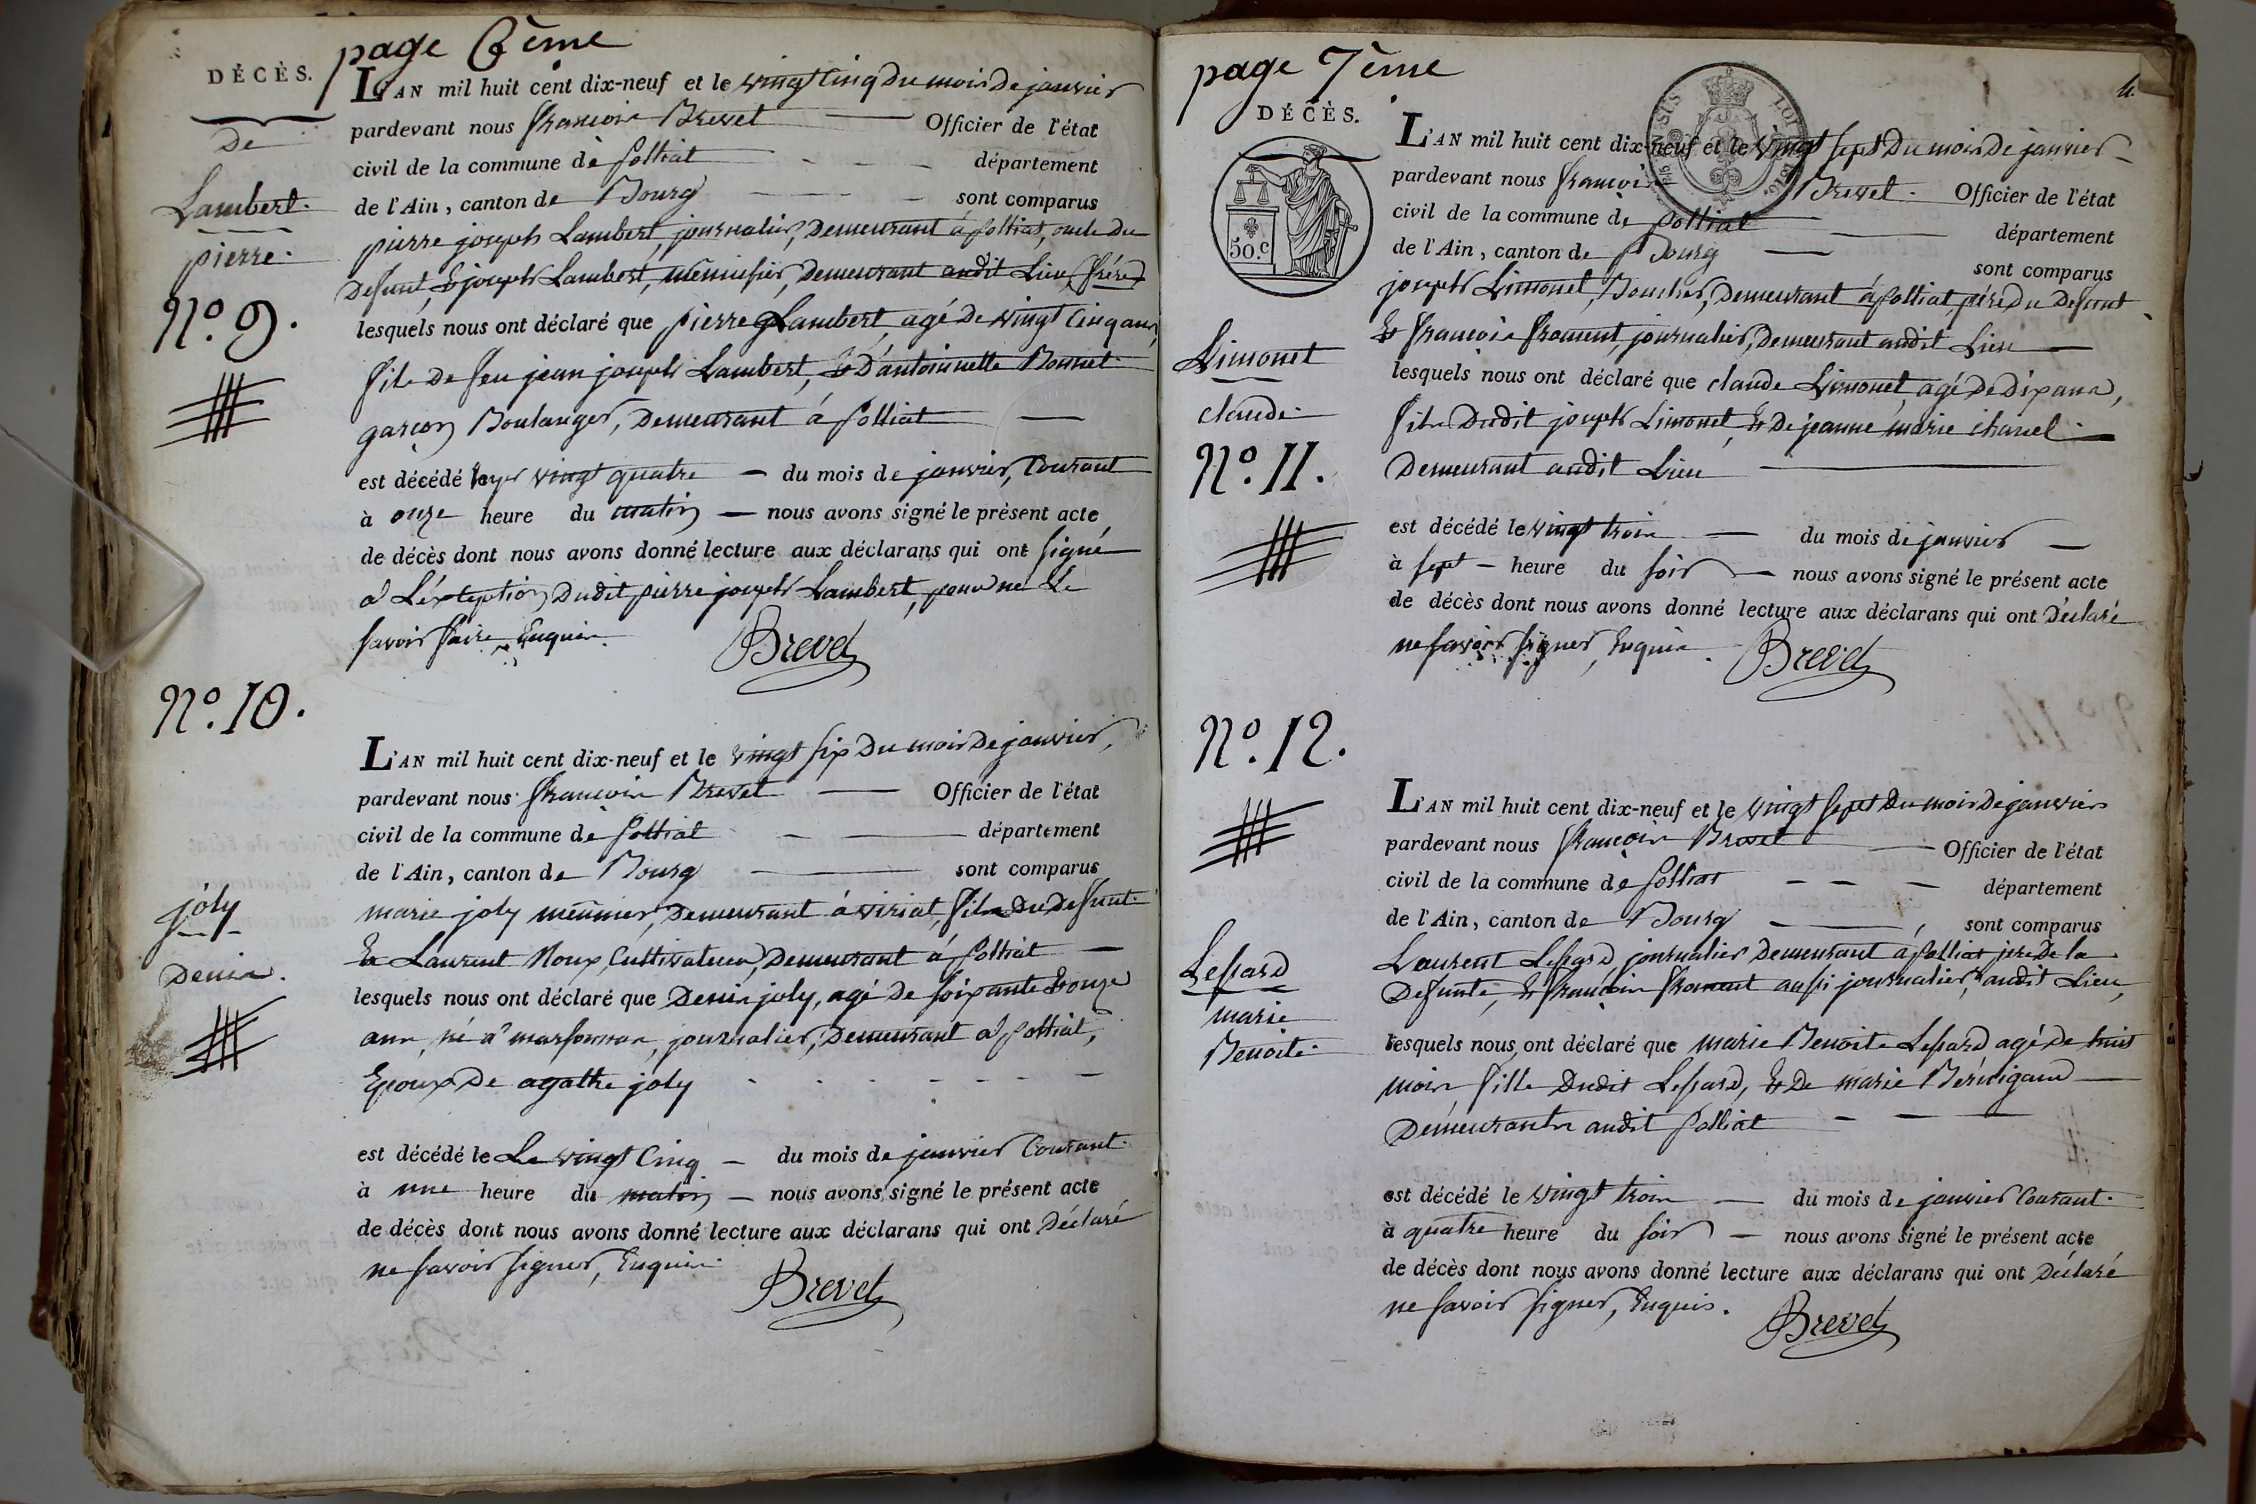 page 6ème
DÉCÈS.
De
Lambert.
pierre.
N.º 9.
L'AN mil huit cent dix-neuf et le vingt cinq du mois de janvier
pardevant nous françois Brevet Officier de l'état
civil de la commune de polliat département
de l'Ain, canton de Bourg sont comparus
pierre joseph Lambert, journalier, Demeurant à polliat, oncle du
Defunt, & joseph Lambert, menuisier, Demeurant audit Lieu, frère
lesquels nous ont déclaré que pierre Lambert, agé De vingt cinq ans,
fils De feu jean joseph Lambert, & D'antoinette Monnet
garçon Boulanger, Demeurant à polliat
est décédé hyer vingt quatre du mois de janvier, Courant
à onze heure du matin nous avons signé le présent acte
de décès dont nous avons donné lecture aux déclarans qui ont signé
à L'exception Dudit pierre joseph Lambert, pour ne Le
savoir faire, Enquis.
Brevet
N.º 10.
joly
Denis.
L'AN mil huit cent dix-neuf et le vingt six Du mois De janvier,
pardevant nous françois Brevet Officier de l'état
civil de la commune de polliat département
de l'Ain, canton de Bourg sont comparus
marie joly meûnier, Demeurant à viriat, fils Du Defunt
& Laurent Roux, Cultivateur, Demeurant à polliat
lesquels nous ont déclaré que Denis joly, agé De soixante & onze
ans, né à marsonnas, journalier, Demeurant à polliat,
Epoux De agathe joly
est décédé le Le vingt Cinq du mois de janvier Courant
à une heure du matin nous avons signé le présent acte
de décès dont nous avons donné lecture aux déclarans qui ont Déclaré
ne savoir signer, Enquis
Brevet
page 7ème
4.
DÉCÈS.
50.c
LOI DE 1816.
Limonet
claude
N.º 11.
L'AN mil huit cent dix-neuf et le vingt sept Du mois De janvier
pardevant nous françois Brevet Officier de l'état
civil de la commune de polliat département
de l'Ain, canton de Bourg sont comparus
joseph Limonet, Boucher, Demeurant à polliat, père Du Defunt
& françois froment, journalier, Demeurant audit Lieu
lesquels nous ont déclaré que claude Limonet, agé De Dix ans,
fils Dudit joseph Limonet, & De jeanne marie chanel
Demeurant audit Lieu
est décédé le vingt trois du mois de janvier
à sept heure du soir nous avons signé le présent acte
de décès dont nous avons donné lecture aux déclarans qui ont Déclaré
ne savoir signer, Enquis.
Brevet
N.º 12.
Lessard
marie
Benoite
L'AN mil huit cent dix-neuf et le vingt sept Du mois De janvier
pardevant nous françois Brevet Officier de l'état
civil de la commune de polliat département
de l'Ain, canton de Bourg sont comparus
Laurent Lessard journalier Demeurant à polliat père De la
Defunte, & françois froment aussi journalier, audit Lieu,
lesquels nous ont déclaré que marie Benoite Lessard agé De huit
mois, fille Dudit Lessard, & De marie
Demeurants audit polliat
est décédé le vingt trois du mois de janvier Courant
à quatre heure du soir nous avons signé le présent acte
de décès dont nous avons donné lecture aux déclarans qui ont Déclaré
ne savoir signer, Enquis.
Brevet